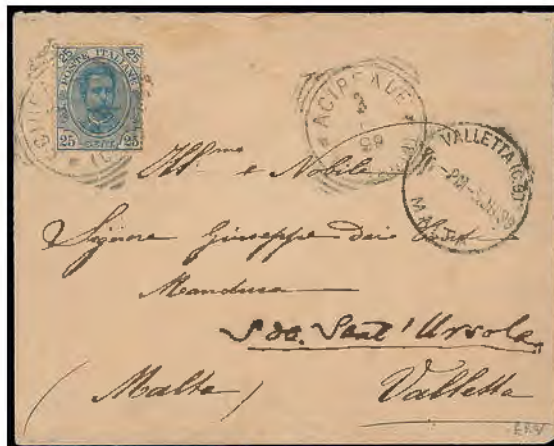 25 25
POSTE ITALIANE
25 CENT. 25
ACIREALE
98
VALLETTA (G.P.O)
MALTA
Ill.mo e Nobile
Signore Giuseppe dei
Manduca
Sda. Sant'Ursola
(Malta) Valletta